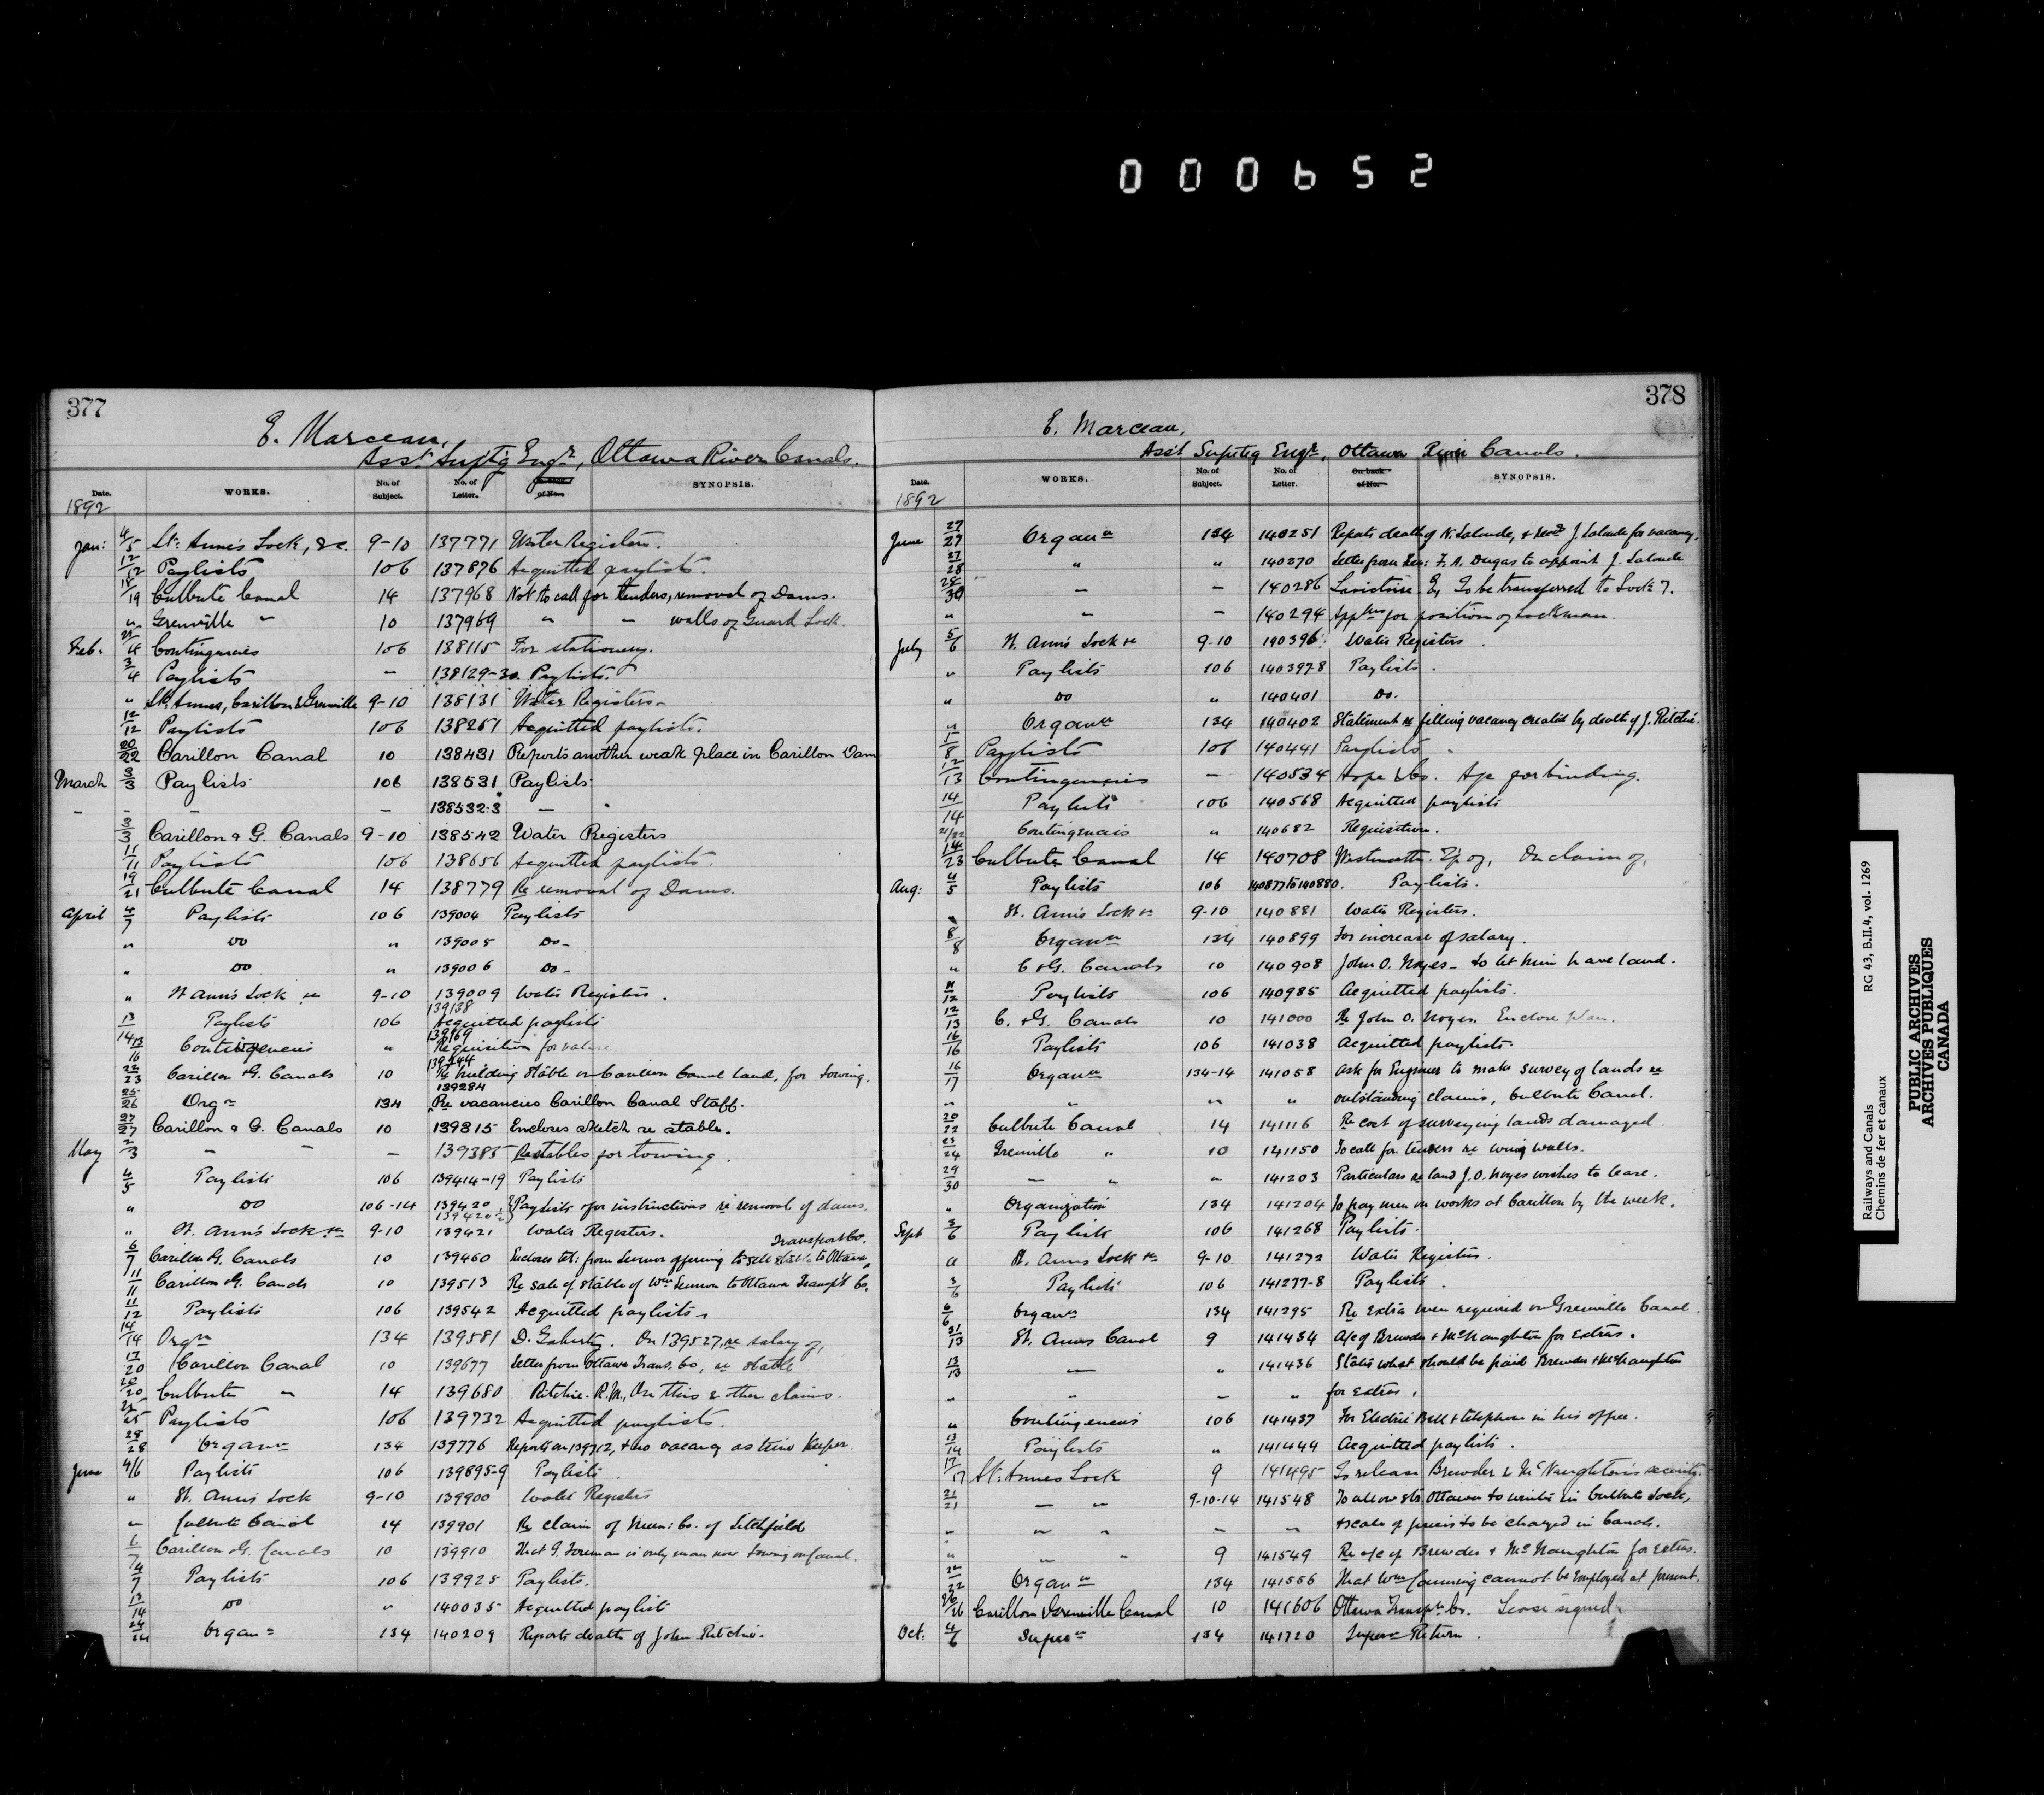 000652
377
E. Marceau,
Asst Suptg Engr, Ottawa River Canals.
Date. WORKS. No. of Subject. No. of Letter. On back of No. SYNOPSIS.
1892
Jan: 4/5 St. Anne's Lock, &c. 9-10 137771 Water Registers.
12/12 Paylists 106 137876 Acquitted paylists.
18/19 Culbute Canal 14 137968 Not to call for tenders, removal of Dams.
" Grenville " 10 137969 " — walls of Guard Lock.
Feb. Contingencies 106 138115 For stationery.
3/4 Paylists — 138129-30 Paylists.
" St. Annes, Carillon & Grenville 9-10 138131 Water Registers.
12/12 Paylists 106 138261 Acquitted paylists.
20/22 Carillon Canal 10 138431 Reports another weak place in Carillon Dam
March 3/3 Paylists 106 138531 Paylists
— — — 138532-3 — "
3/3 Carillon & G. Canals 9-10 138542 Water Registers
11/11 Paylists 106 138656 Acquitted paylists.
19/21 Culbute Canal 14 138779 Re removal of Dams.
April 4/7 Paylists 106 139004 Paylists
" Do " 139005 Do-
" Do " 139006 Do-
" St Ann's Lock &c 9-10 139009 Water Registers.
13 Paylists 106 139138 Acquitted paylists
Contingencies " 139169 Requisition for
22/23 Carillon & G. Canals 10 139244 Re building Stable on Carillon Canal land, for towing.
25/26 Orgn 134 139284 Re vacancies Carillon Canal Staff.
27/27 Carillon & G. Canals 10 139315 Encloses sketch re stable.
May 2/3 " — — 139385 Re stables for towing.
4/5 Paylists 106 139414-19 Paylists
" Do 106-14 139420 139420½ Paylists & for instructions re removal of dams.
" St. Ann's Lock &c 9-10 139421 Water Registers.
6/7 Carillon & G. Canals 10 139460 Encloses let: from offering to sell stable to Ottawa Transport Co.
11/11 Carillon & G. Canals 10 139513 Re sale of stable of Wm to Ottawa Transpt Co.
11/12 Paylists 106 139542 Acquitted paylists.
14/14 Orgn 134 139581 D. Gaherty. On 139527, re salary of,
17/20 Carillon Canal 10 139677 Letter from Ottawa Trans. Co, re stable
20/20 Culbute " 14 139680 Ritchie. R.M., On this & other claims.
25/25 Paylists 106 139732 Acquitted paylists.
28/28 Organn 134 139776 Reports on 139712, & no vacancy as time Keeper.
June 4/6 Paylists 106 139895-9 Paylists
" St. Ann's Lock 9-10 139900 Water Registers
" Culbute Canal 14 139901 Re claim of Mun: Co. of Litchfield
6/7 Carillon & G. Canals 10 139910 That G. Foreman is only man now towing on Canal.
4/7 Paylists 106 139925 Paylists.
13/14 Do " 140035 Acquitted paylist
24/24 Organn 134 140209 Reports death of John Ritchie.
378
E. Marceau,
Asst Suptg Engr, Ottawa River Canals.
Date. WORKS. No. of Subject. No. of Letter. On back of No. SYNOPSIS.
1892
June 27/27 Organn 134 140251 Reports death of N. Lalonde, & recds J. Lalonde for vacancy.
27/28 " " 140270 Letter from Rev: F. A. Dugas to appoint J. Lalonde
28/30 — — 140286 Lavictoire E, To be transferred to Lock 7.
" " — 140294 Appns for position of Lockman.
July 5/6 St. Ann's Lock &c 9-10 140396 Water Registers.
" Paylists 106 140397-8 Paylists.
" Do " 140401 Do.
" Organn 134 140402 Statement re filling vacancy created by death of J. Ritchie.
Paylists 106 140441 Paylists
12/13 Contingencies — 140534 Hope & Co. A/c for binding.
14/14 Paylists 106 140568 Acquitted paylists
21/22 Contingencies " 140682 Requisition.
14/23 Culbute Canal 14 140708 On claim of,
Aug: 4/5 Paylists 106 140877 to 140880. Paylists.
" St. Ann's Lock &c 9-10 140881 Water Registers.
8/8 Organn 134 140899 For increase of salary.
" C & G. Canals 10 140908 John O. Noyes - to let him have land.
11/12 Paylists 106 140985 Acquitted paylists.
12/13 C. & G. Canals 10 141000 Re John O. Noyes. Enclose plan.
16/16 Paylists 106 141038 Acquitted paylists.
16/17 Organn 134-14 141058 Ask for Engineer to make survey of lands re
" " " " outstanding claims, Culbute Canal.
20/22 Culbute Canal 14 141116 Re cost of surveying lands damaged
23/24 Grenville " 10 141150 To call for tenders re wing walls.
29/30 — " " 141203 Particulars re land J.O. Noyes wishes to lease.
" Organization 134 141204 To pay men on works at Carillon by the week.
Sept 3/6 Paylists 106 141268 Paylists.
" St. Anns Lock &c 9-10 141272 Water Registers.
3/6 Paylists 106 141277-8 Paylists.
6/6 Organn 134 141295 Re Extra men required on Grenville Canal.
31/13 St. Anns Canal 9 141434 A/c of Brewder & McNaughton for Extras.
13/13 — " 141436 States what should be paid Brewder & McNaughton
— " — " for extras.
" Contingencies 106 141437 For Electric Bell & telephone in his office.
13/14 Paylists " 141444 Acquitted paylists.
17/17 St. Annes Lock 9 141495 To release Brewder & McNaughton's security.
21/21 — " 9-10-14 141548 To allow str Ottawa to winter in Culbute Lock,
" " " " " & scale of prices to be charged in Canals.
" " " 9 141549 Re a/c of Brewder & McNaughton for extras.
22/22 Organn 134 141556 That Wm Canning cannot be Employed at present.
26/26 Carillon & Grenville Canal 10 141606 Ottawa Transpn Co. Lease signed
Oct: 4/6 Supern 134 141720 Supern Return.
Railways and Canals RG 43, B.II.4, vol. 1269
Chemins de fer et canaux
PUBLIC ARCHIVES
ARCHIVES PUBLIQUES
CANADA